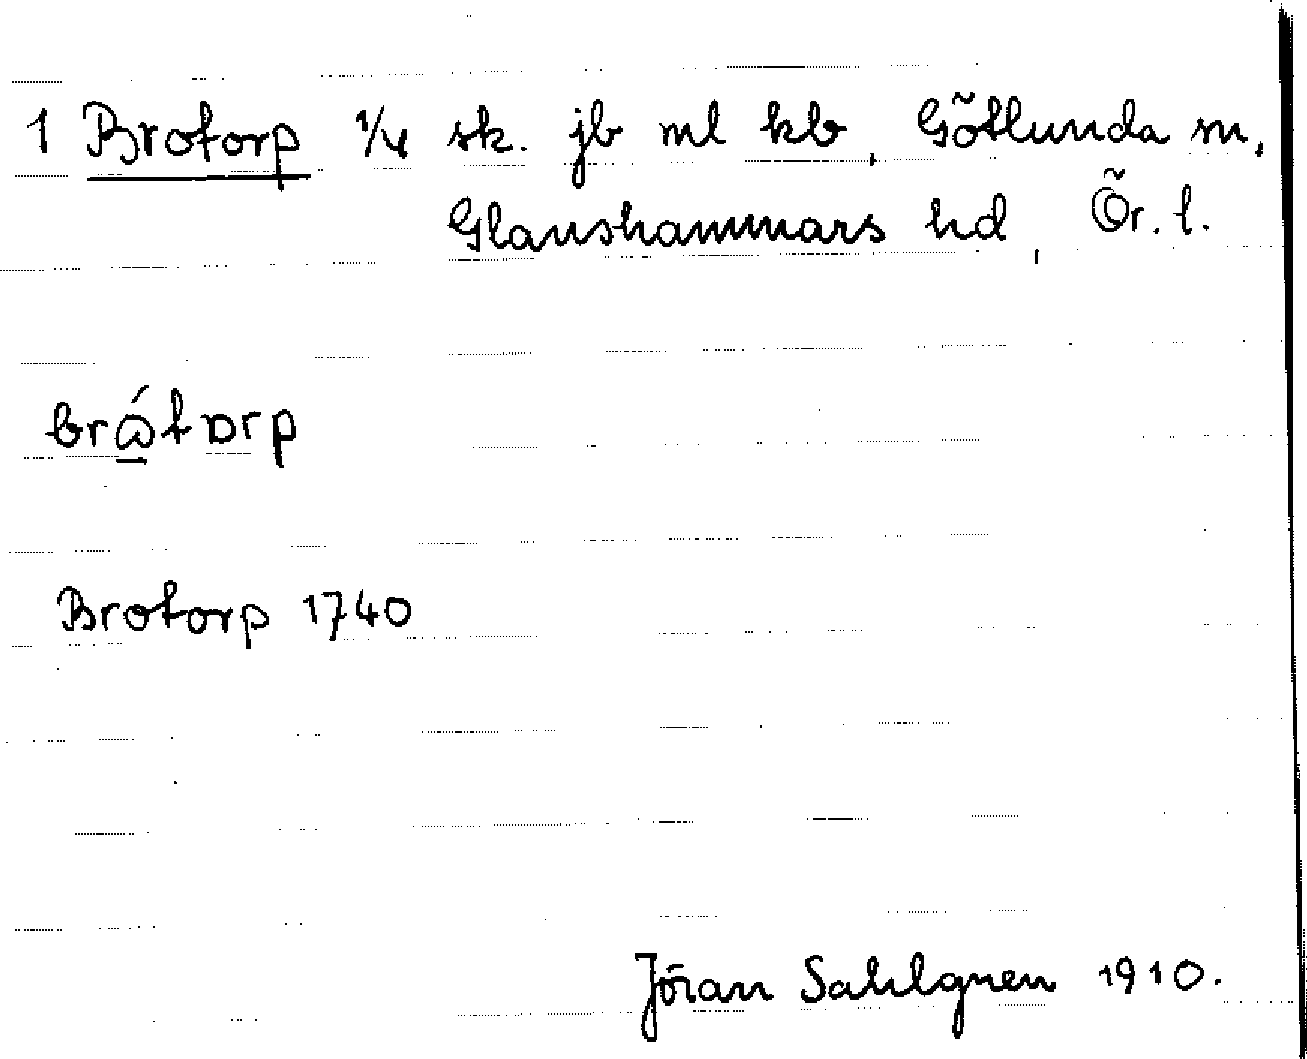 1 Brotorp 1/4 sk. jb ml kb, Götlunda sn,
Glanshammars hd, Ör. l.
brώtɒrp
Brotorp 1740
Jöran Sahlgren 1910.